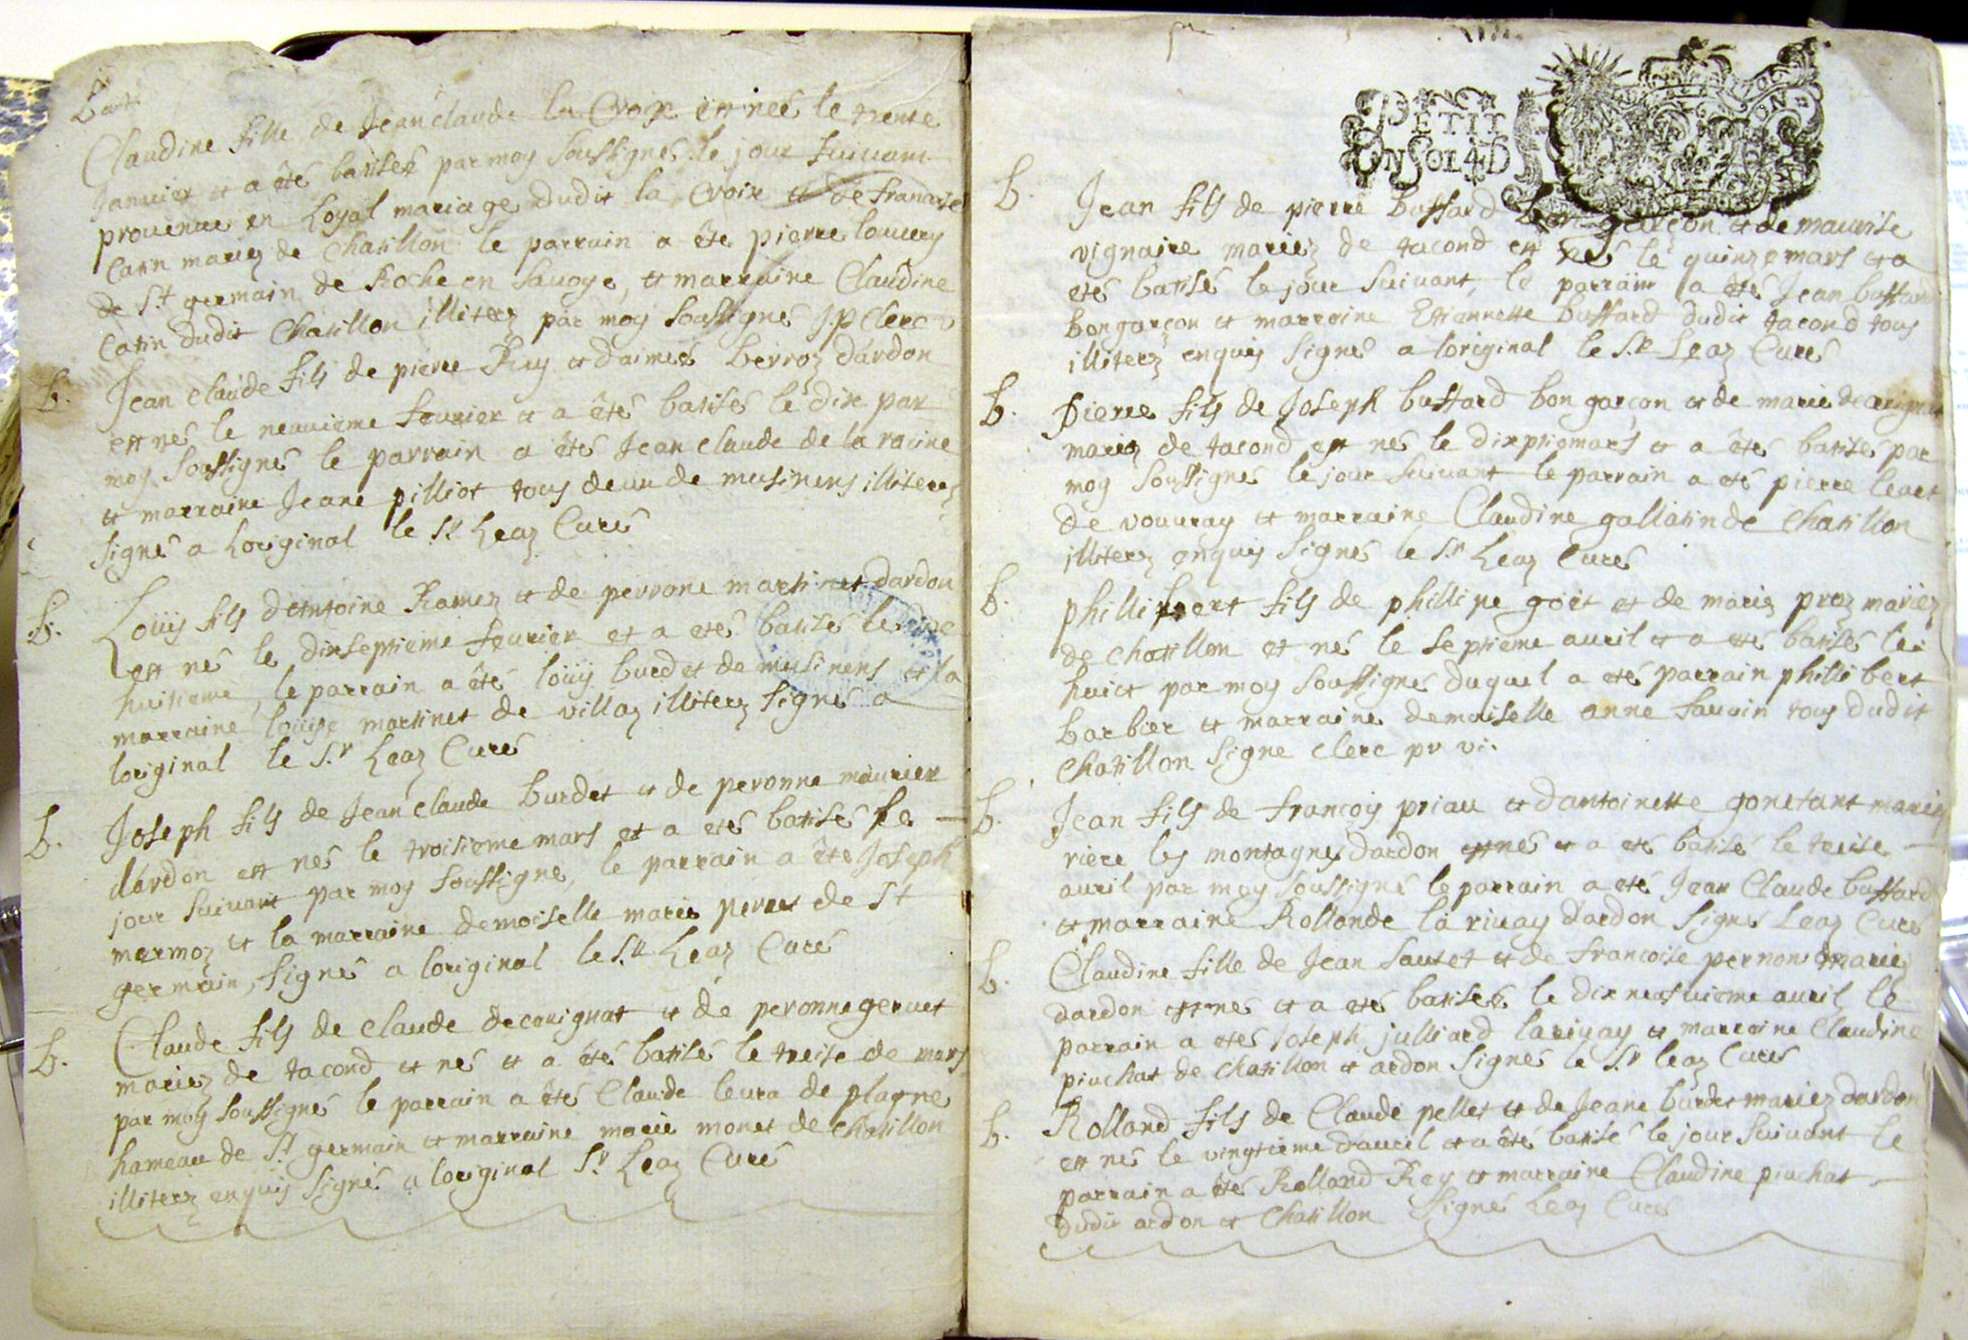 Claudine fille de Jean claude la Croix est née le trente
Janvier et a été batisée par moy soussigné le jour suivant
provenue en Loyal mariage dudit la Croix et de francoise
Catin mariez de Chatillon le parrain a été pierre
de St germain de Roche en Savoye, et marraine Claudine
Catin dudit Chatillon illiterez par moy soussigné J.P Clerc
b.
Jean claude fils de pierre Ruy et daimée berroz dardon
est né le neuvieme fevrier et a êté batisé le dix par
moy soussigné le parrain a êté Jean claude de la racine
et marraine Jeane pilliot tous deux de musinens illiterez
signé a Loriginal le Sr Leaz Curé
b.
Louis fils dantoine Ramez et de perrone martinet dardon
est né le dixseptieme fevrier et a eté batisé le
huitieme, le parrain a été louis burdet de musinens et la
marraine louise martinet de villaz illiterz signé a
loriginal le S.r Leaz Curé
b.
Joseph fils de Jean claude burdet et de peronne maurier
dardon est né le troisieme mars et a eté batisé le
jour suivant par moy soussigné, le parrain a été Joseph
mermoz et la marraine demoiselle marie perret de St
germain, signé a loriginal le S.r Leaz Curé
b.
Claude fils de claude decorignat et de peronne gervet
mariez de tacond et né et a êté batisé le treise de mars
par moy soussigné le parrain a êté Claude leura de plagne
hameau de St germain et marraine marie monet de Chatillon
illiterz enquis signé a loriginal Sr Leaz Curé
PETIT
UN SOL 4 D
b.
Jean fils de pierre buffard bon garçon et de maurise
vignaire mariez de tacond est né le quinze mars et a
eté batisé le jour suivant, le parrain a êté Jean buffard
bongarçon et marraine Etiannette buffard dudit tacond tous
illiterz enquis signé a loriginal le S.r Leaz Curé
b.
Pierre fils de Joseph buffard bon garçon et de marie
mariez de tacond est né le dixseptiemars et a êté batisé par
moy soussigné le jour suivant le parrain a eté pierre
de vouvray et marraine Claudine gallatin de Chatillon
illiterz enquis signé le S.r Leaz Curé
b.
phillibert fils de phillipe goit et de marie praz mariez
de chatillon et né le septieme avril et a eté batisé le
huict par moy soussigné duquel a eté parrain phillibert
barbier et marraine demoiselle anne fauvin tous dudit
Chatillon signe clerc pr vi.
b.
Jean fils de francois priau et dantoinette gonetant mariez
riere les montagnes dardon est né et a eté batisé le treise
avril par moy soussigné le parrain a eté Jean Claude buffard
et marraine Rollande la rivay dardon signé Leaz Curé
b.
Claudine fille de Jean sauvet et de francoise pernon mariez
dardon est née et a eté batisée le dix neufvieme avril le
parrain a eté Joseph julliard larivay et marraine Claudine
piuchat de chatillon et ardon signé le S.r leaz Curé
b.
Rolland fils de Claude pellet et de Jeane burdet mariez dardon
est né le vingtieme davril et a êté batisé le jour suivant le
parrain a êté Rolland Rey et marraine Claudine piuchat
dudit ardon et Chatillon signé Leaz Curé